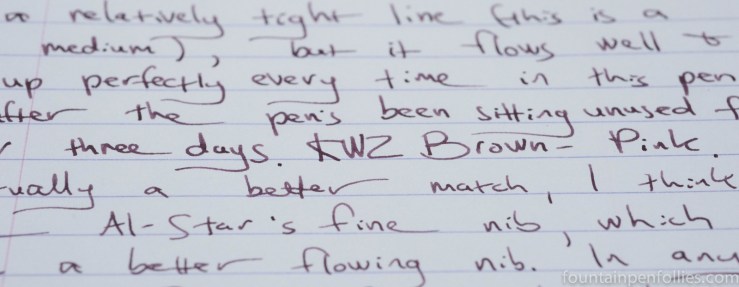 a relatively tight line (this is a
medium), but it flows well
up perfectly every time in this pen
after the pen's been sitting unused f
three days. KWZ Brown-Pink.
ually a better match, I think
Al-Star's fine nib, which
a better flowing nib. In any
fountainpenfollies.com